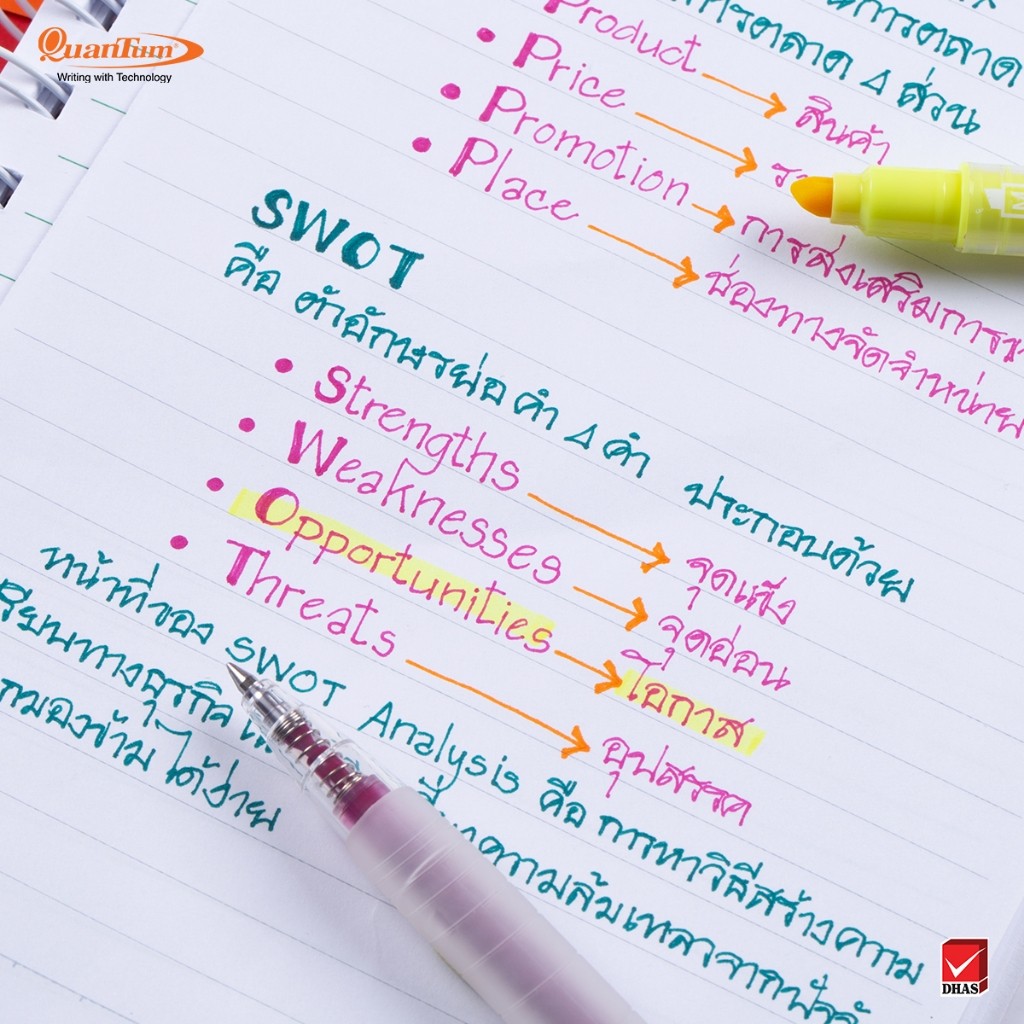 QuanTum®
Writing with Technology
การตลาด
การตลาด 4 ส่วน
Product → สินค้า
• Price →
• Promotion → การส่งเสริมการ
• Place → ช่องทางจัดจำหน่าย
SWOT
คือ ตัวอักษรย่อคำ 4 คำ ประกอบด้วย
• Strengths → จุดแข็ง
• Weaknesses → จุดอ่อน
• Opportunities → โอกาส
• Threats → อุปสรรค
หน้าที่ของ SWOT Analysis คือ การหาวิธีสร้างความ
เรียบทางธุรกิจ ความล้มเหลวจากปัจจั
มองข้ามได้ง่าย
DHAS